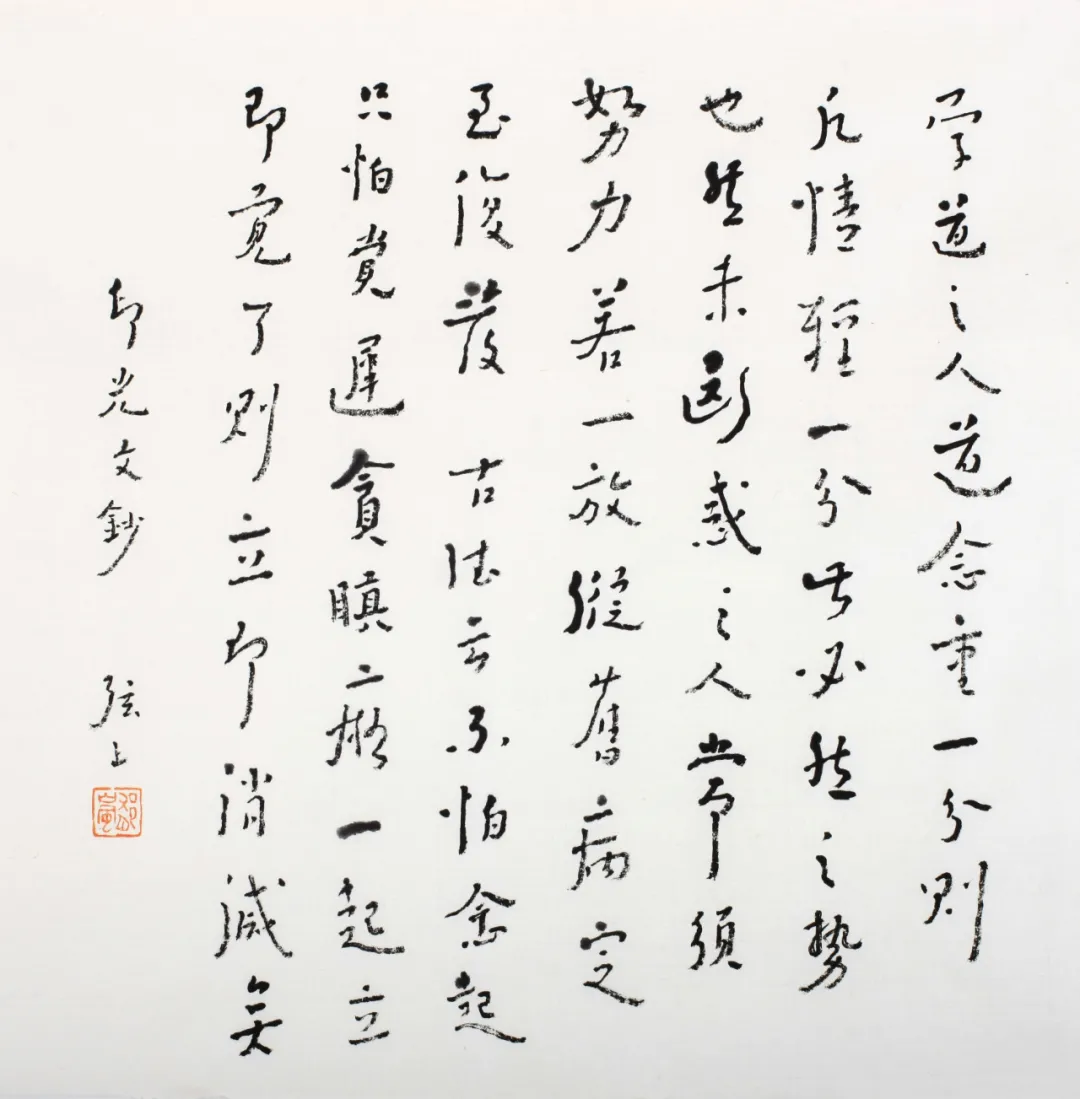 學道之人道念重一分則
凡情輕一分此必然之勢
也然未斷惑之人常須
努力若一放縱舊病定
至復發 古德云不怕念起
只怕覺遲貪瞋癡一起立
即覺了則立即消滅矣
印光文鈔 弦上